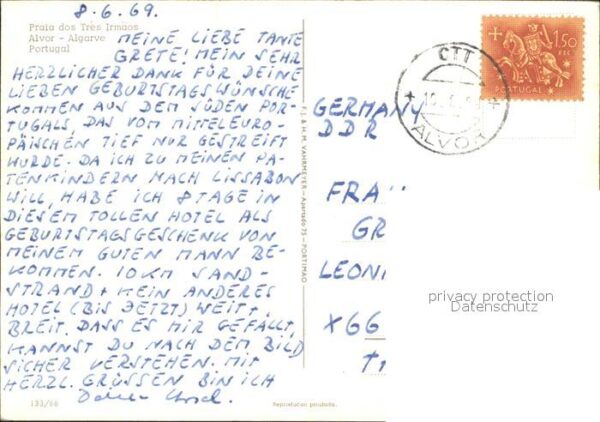 8.6.69.
Praia dos Três Irmãos
Alvor - Algarve
Portugal
MEINE LIEBE TANTE
GRETE! MEIN SEHR
HERZLICHER DANK FÜR DEINE
LIEBEN GEBURTSTAGSWÜNSCHE
KOMMEN AUS DEM SÜDEN POR-
TUGALS, DAS VOM MITTELEURO-
PÄISCHEN TIEF NUR GESTREIFT
WURDE. DA ICH ZU MEINEN PA-
TENKINDERN NACH LISSABON
WILL, HABE ICH 8 TAGE IN
DIESEM TOLLEN HOTEL ALS
GEBURTSTAGSGESCHENK VON
MEINEM GUTEN MANN BE-
KOMMEN. 10 KM SAND-
STRAND + KEIN ANDERES
HOTEL (BIS JETZT) WEIT +
BREIT. DASS ES MIR GEFÄLLT,
KANNST DU NACH DEM BILD
SICHER VERSTEHEN. MIT
HERZL. GRÜSSEN BIN ICH
133/66
Reprodution proibida.
F.I. & H.M. VAHRMEYER - Apartado 75 - PORTIMAO
CTT
ALVOR
1.50
ESC.
PORTUGAL
GERMANY
DDR
FRA
GR
LEON
X66
privacy protection
Datenschutz